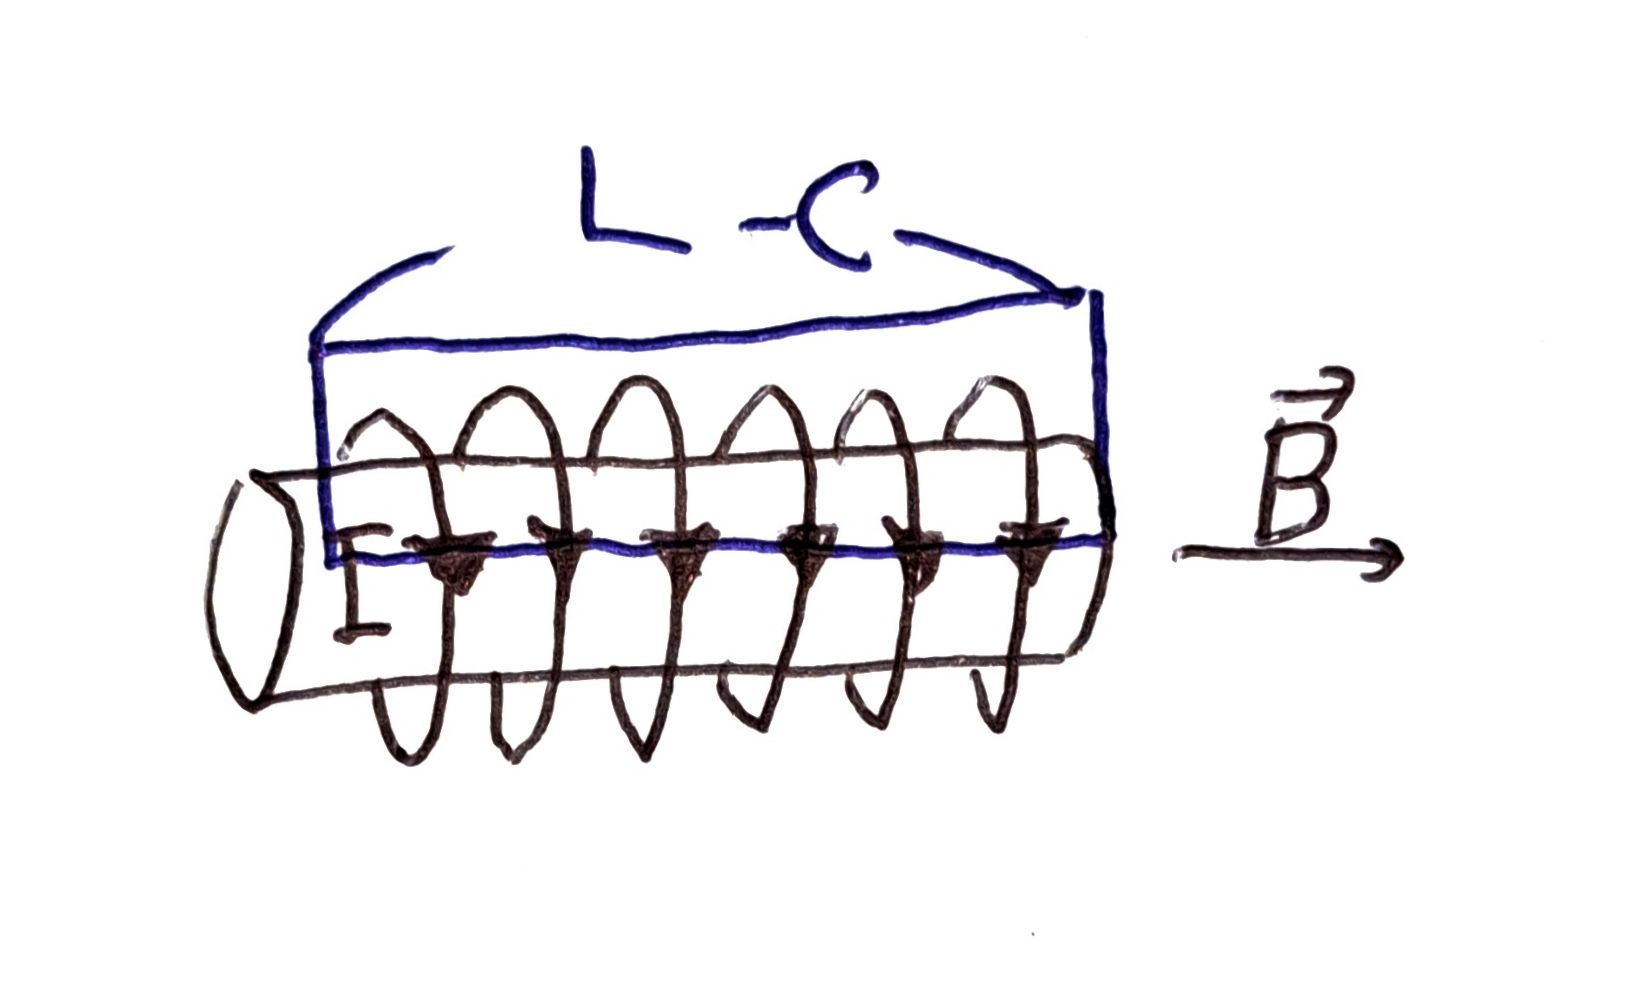 L -C
I
B⃗